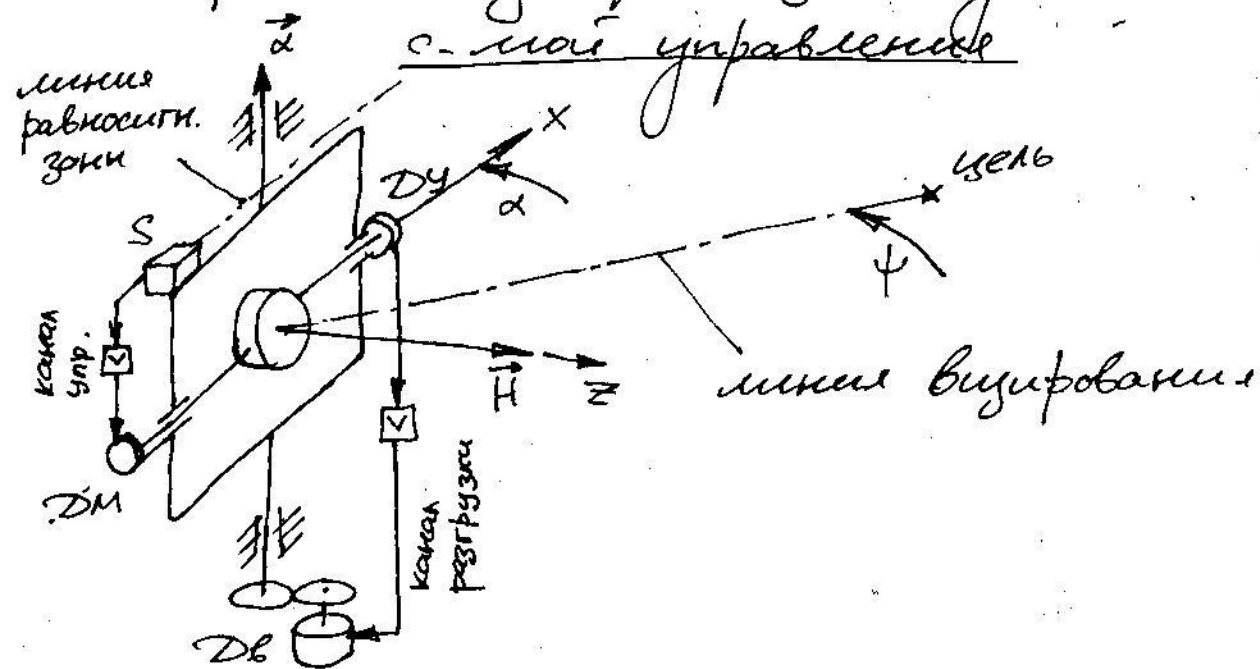 с-мой управления
α
линия
равносигн.
зоны
X
ДУ
α
цель
S
ψ
канал
упр.
H
Z
линия визирования
ДМ
канал
разгрузки
Дв